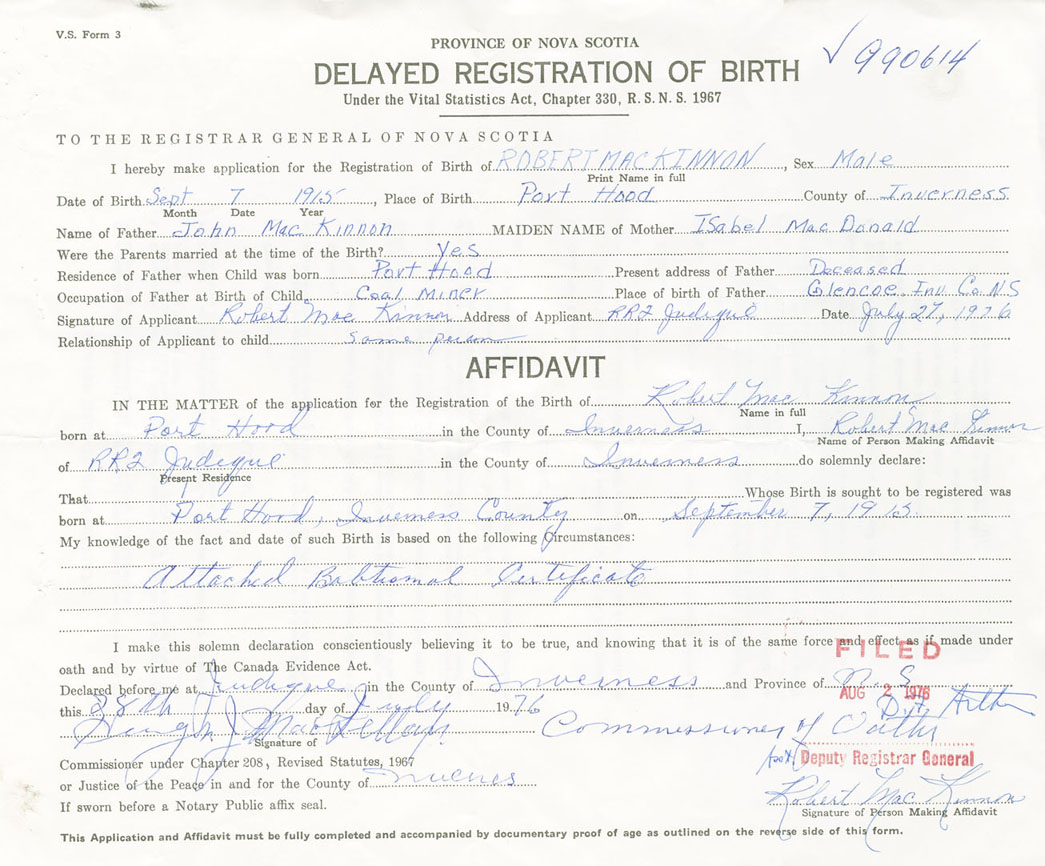 V.S. Form 3
PROVINCE OF NOVA SCOTIA
990614
DELAYED REGISTRATION OF BIRTH
Under the Vital Statistics Act, Chapter 330, R.S.N.S. 1967
TO THE REGISTRAR GENERAL OF NOVA SCOTIA
I hereby make application for the Registration of Birth of ROBERT MAC KINNON, Sex Male
Print Name in full
Date of Birth Sept 7 1915, Place of Birth Port Hood County of Inverness
Month Date Year
Name of Father John Mac Kinnon MAIDEN NAME of Mother ISabel Mac Donald
Were the Parents married at the time of the Birth? Yes
Residence of Father when Child was born Port Hood Present address of Father Deceased
Occupation of Father at Birth of Child Coal Miner Place of birth of Father Glencoe Inv. Co. N.S
Signature of Applicant Robert Mac Kinnon Address of Applicant RR2 Judique Date July 27, 1976
Relationship of Applicant to child same person
AFFIDAVIT
IN THE MATTER of the application for the Registration of the Birth of Robert Mac Kinnon
Name in full
born at Port Hood in the County of Inverness I, Robert Mac Kinnon
Name of Person Making Affidavit
of RR2 Judique in the County of Inverness do solemnly declare:
Present Residence
That Whose Birth is sought to be registered was
born at Port Hood, Inverness County on September 7, 1915
My knowledge of the fact and date of such Birth is based on the following Circumstances:
Attached Babtismal Certificate
I make this solemn declaration conscientiously believing it to be true, and knowing that it is of the same force and effect as if made under
oath and by virtue of The Canada Evidence Act.
FILED
Declared before me at Judique in the County of Inverness and Province of N.S
AUG 2 1976
this 28th day of July 1976
Commissioner of Oaths
Signature of
Commissioner under Chapter 208, Revised Statutes, 1967
Deputy Registrar General
or Justice of the Peace in and for the County of
Robert Mac Kinnon
If sworn before a Notary Public affix seal.
Signature of Person Making Affidavit
This Application and Affidavit must be fully completed and accompanied by documentary proof of age as outlined on the reverse side of this form.